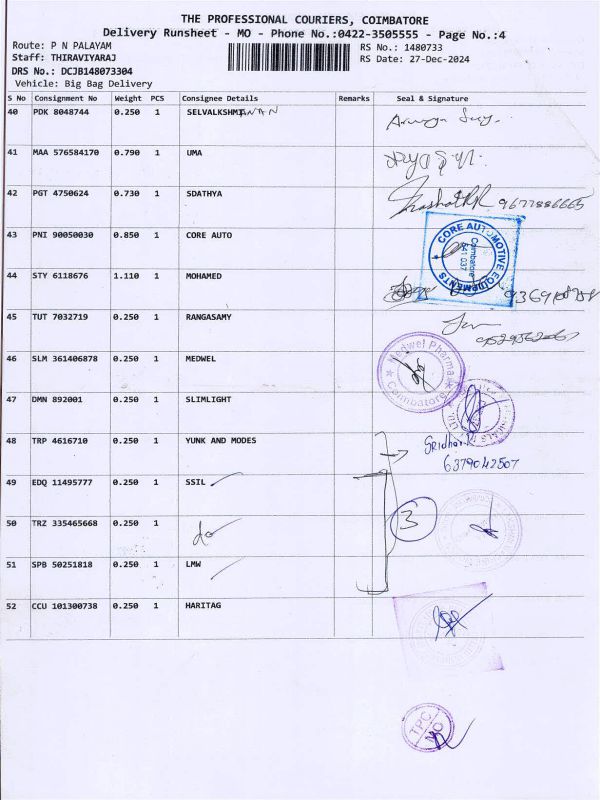 THE PROFESSIONAL COURIERS, COIMBATORE
Delivery Runsheet - MO - Phone No.:0422-3505555 - Page No.:4
Route: P N PALAYAM
Staff: THIRAVIYARAJ
DRS No.: DCJB148073304
Vehicle: Big Bag Delivery
RS No.: 1480733
RS Date: 27-Dec-2024
S No Consignment No Weight PCS Consignee Details Remarks Seal & Signature
40 PDK 8048744 0.250 1 SELVALKSHMI
41 MAA 576584170 0.790 1 UMA
42 PGT 4750624 0.730 1 SDATHYA 9677886665
43 PNI 90050030 0.850 1 CORE AUTO
CORE AUTOMOTIVE EQUIPMENTS
Coimbatore
641 037
44 STY 6118676 1.110 1 MOHAMED
45 TUT 7032719 0.250 1 RANGASAMY
46 SLM 361406878 0.250 1 MEDWEL
Medwel Pharma
Coimbatore
47 DMN 892001 0.250 1 SLIMLIGHT
48 TRP 4616710 0.250 1 YUNK AND MODES
Sridhar
6379042507
49 EDQ 11495777 0.250 1 SSIL
50 TRZ 335465668 0.250 1 do
3
51 SPB 50251818 0.250 1 LMW
52 CCU 101300738 0.250 1 HARITAG
TPC
MO